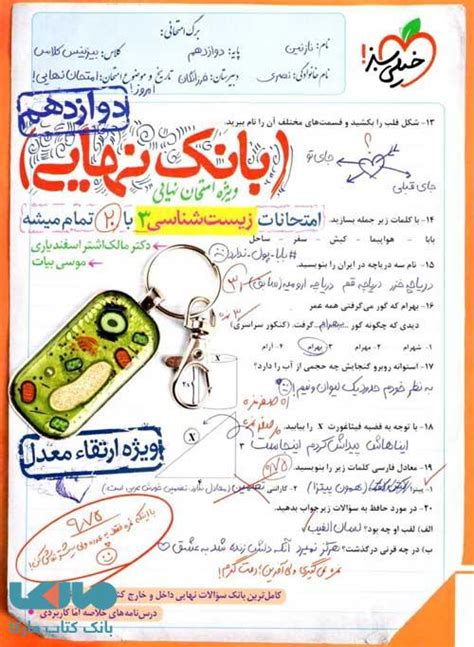 برگ امتحانی:
نام: نازنین
پایه: دوازدهم
کلاس: بیزینس کلاس
نام خانوادگی: نصیری
دبیرستان: فرزانگان
تاریخ و موضوع امتحان: امتحان نهایی!
امروز!
خیلی سبز!
دوازدهم
۱۳- شکل قلب را بکشید و قسمت‌های مختلف آن را نام ببرید.
جای تو
جای قبلی
(بانک نهایی)
ویژه امتحان نهایی
۱۴- با کلمات زیر جمله بسازید.
بابا - هواپیما - کیش - سفر - ساحل
#بابا_پول_ندارد
امتحانات زیست‌شناسی ۳ با ۲۰ تمام میشه
دکتر مالک‌اشتر اسفندیاری
موسی بیات
۱۵- نام سه دریاچه در ایران را بنویسید.
دریاچه خزر دریاچه قم دریاچه ارومیه (سابق)
۱۶- بهرام که گور می‌گرفتی همه عمر
دیدی که چگونه گور بهرام گرفت. (کنکور سراسری)
۳ بهرام ۴ آرام
۱۷- استوانه روبرو گنجایش چه حجمی از آب را دارد؟
به نظر خودم حدود یک لیوان و نیم!
۱۸- با توجه به قضیه فیثاغورث X را بیابید.
X
X
ایناهاش پیداش کردم اینجاست
۱۹- معادل فارسی کلمات زیر را بنویسید.
۱- پیتزا (همون پیتزا)
۲- گارانتی تضمین
۲۰- در مورد حافظ به سؤالات زیر جواب بدهید.
الف) لقب او چه بود؟ لسان الغیب
ب) در چه قرنی درگذشت؟ هرگز نمیرد آنکه دلش زنده شد به عشق
۹/۷۵
ویژه ارتقاء معدل
کامل‌ترین بانک سؤالات نهایی داخل و خارج
درس‌نامه‌های خلاصه اما کاربردی
ماربکا
بانک کتاب مارکا